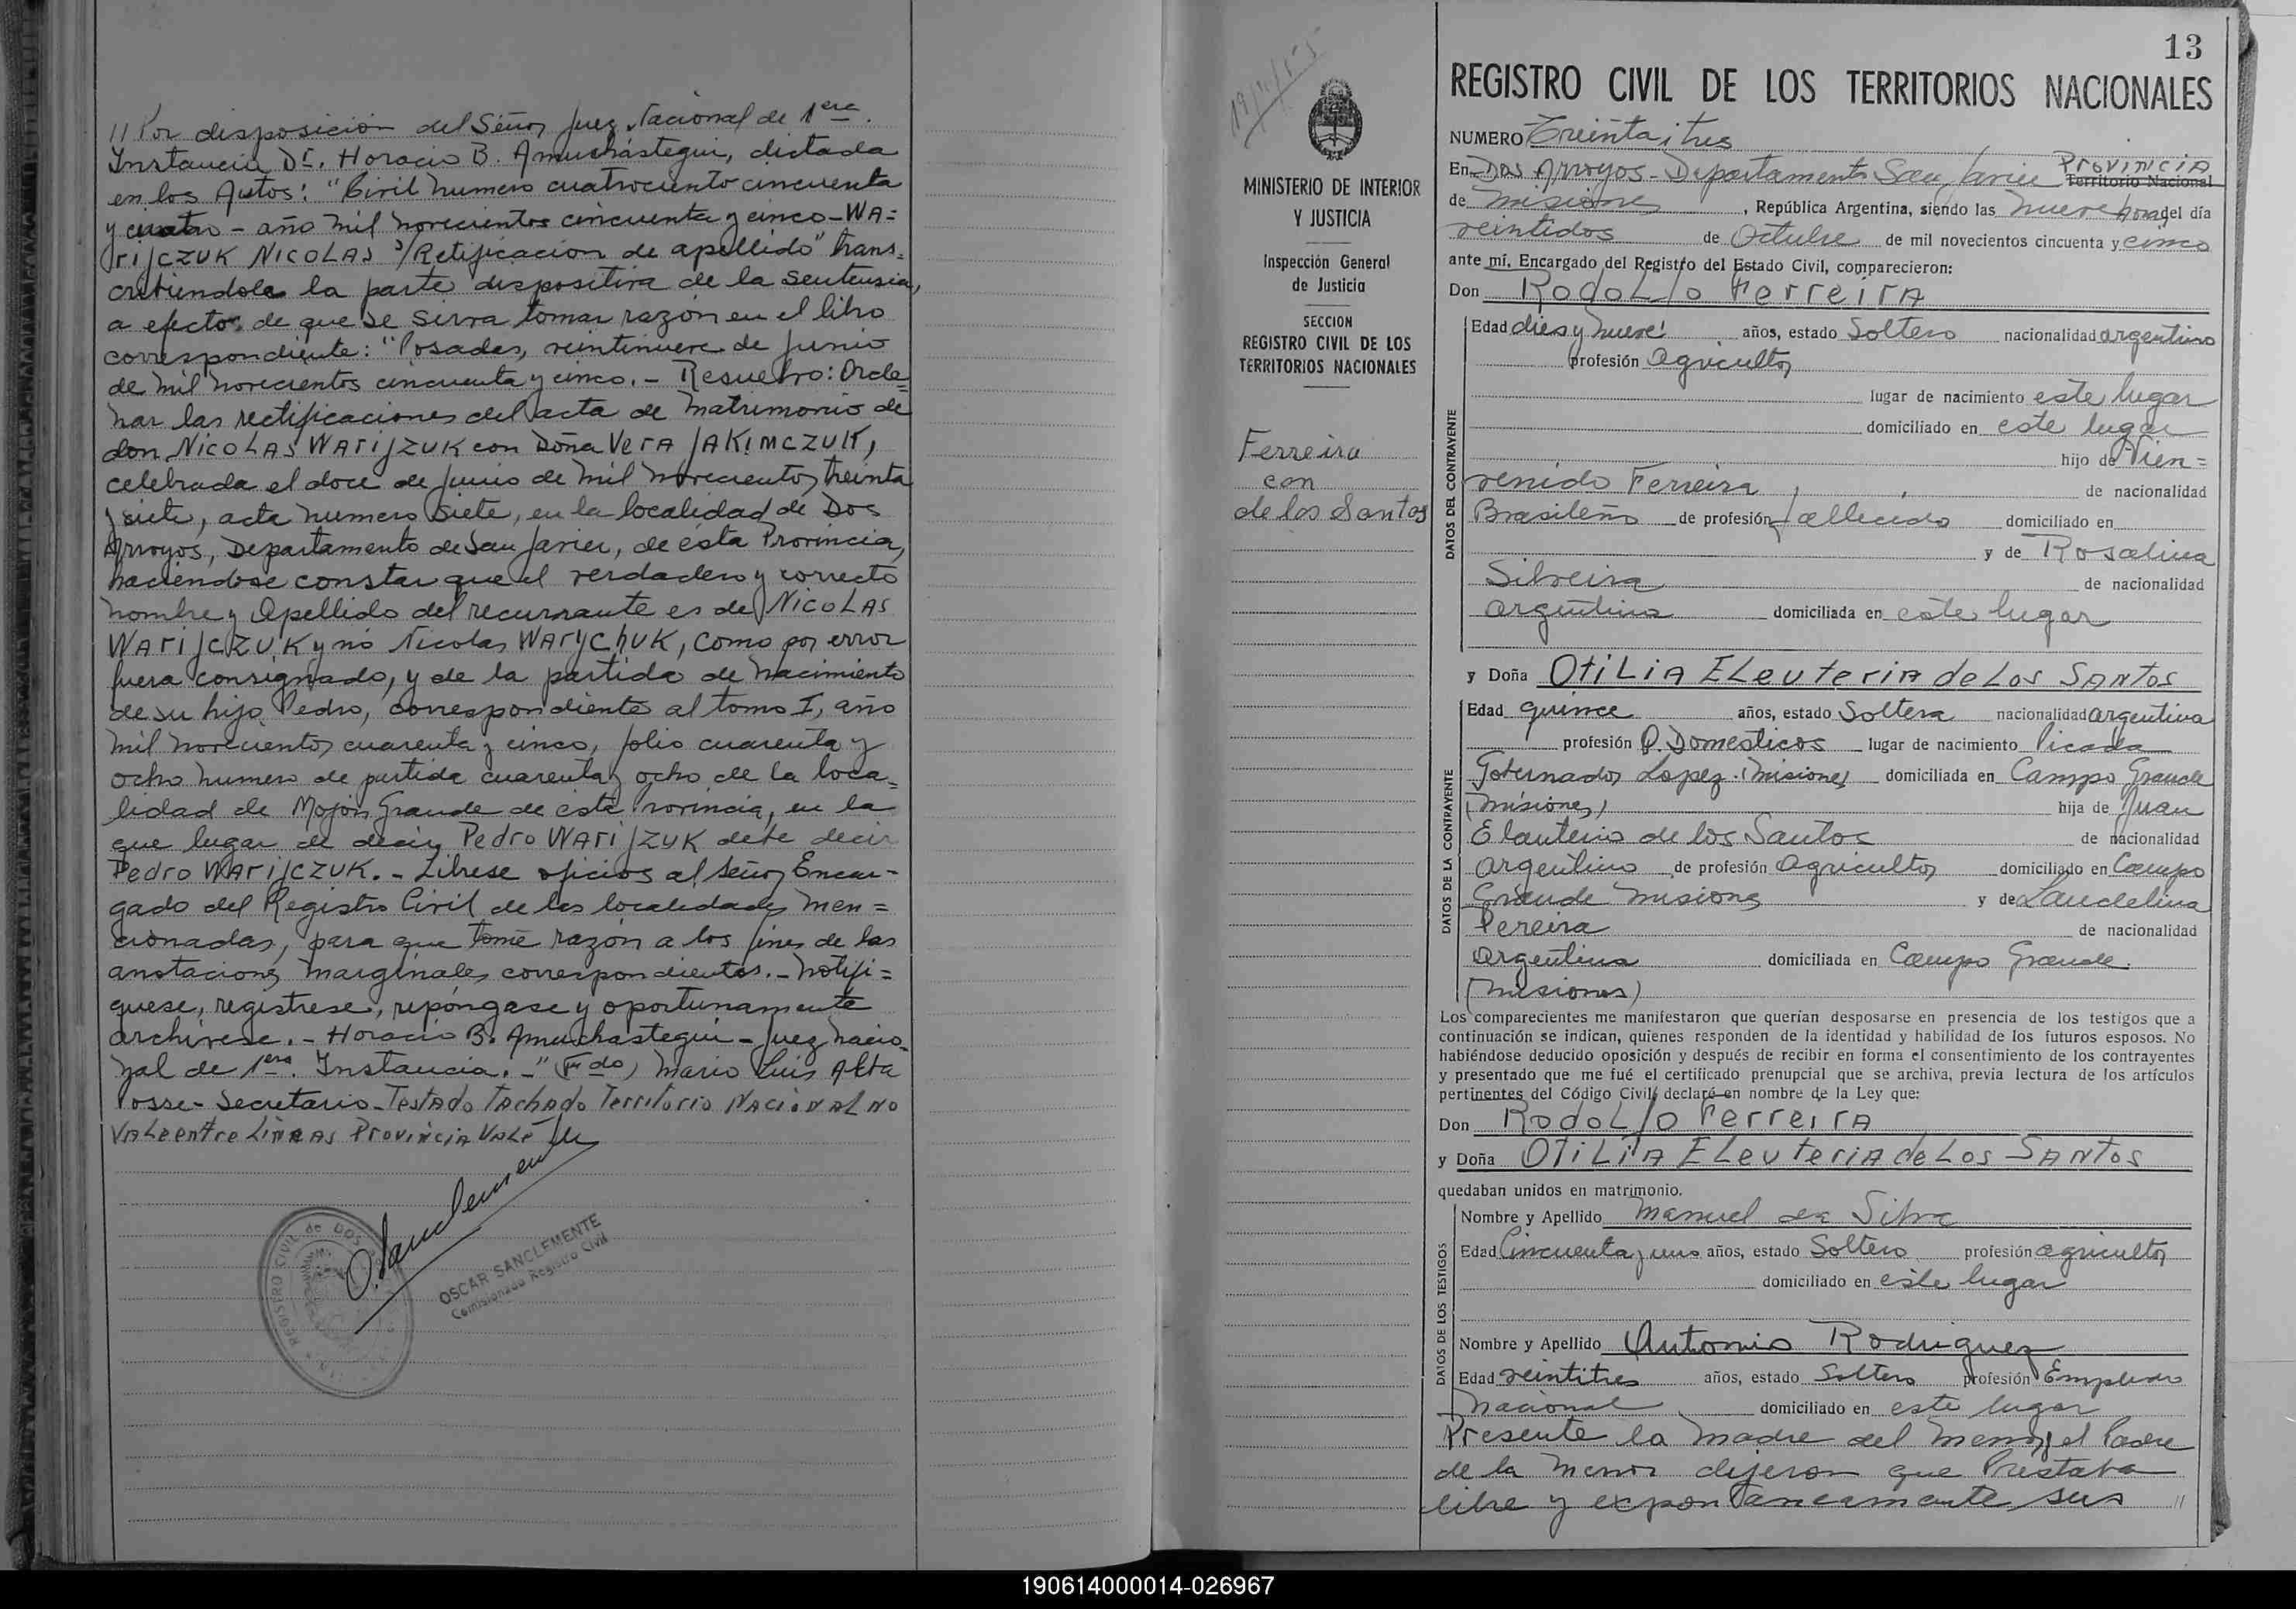 // Por disposición del Señor Juez Nacional de 1era.
Instancia Dr. Horacio B. Amuchástegui, dictada
en los Autos: "Civil numero cuatrociento cincuenta
y cuatro - año mil novecientos cincuenta y cinco - WA=
riJCZUK NICOLAS s/Retificación de apellido" trans=
cribiendole la parte dispositiva de la sentensia,
a efectos de que se sirva tomar razón en el libro
correspondiente: "Posadas, veintinueve de junio
de mil novecientos cincuenta y cinco. - Resuelvo: Orde=
nar las rectificaciones del acta de matrimonio de
don NicoLAS WAriJZUK con Doña VerA JAKIMCZUK,
celebrada el doce de junio de mil novecientos treinta
y siete, acta numero siete, en la localidad de Dos
Arroyos, Departamento de San Javier, de ésta Provincia,
haciéndose constar que el verdadero y correcto
nombre y Apellido del recurrante es de NicoLAS
WAriJCZUK y no Nicolas WArYChUK, como por error
fuera consignado, y de la partida de nacimiento
de su hijo Pedro, correspondiente al tomo I, año
mil novecientos cuarenta y cinco, folio cuarenta y
ocho numero de partida cuarenta y ocho de la loca=
lidad de Mojón Grande de esta Provincia, en la
que lugar de decir Pedro WAriJZUK debe decir
Pedro WAriJCZUK. - Librese oficios al señor Encar-
gado del Registro Civil de las localidades men=
cionadas, para que tome razón a los fines de las
anotaciones marginales correspondientes. - Notifi=
quese, registrese, repóngase y oportunamente
archivese. - Horacio B. Amuchastegui - Juez nacio-
nal de 1era. Instancia. -" (Fdo) Mario Luis Alta
Posse - Secretario - Testado Tachado Territorio NACIONAL NO
VALE entre LINEAS Provincia VALE
O. Sanclemente
REGISTRO CIVIL de DOS
OSCAR SANCLEMENTE
Comisionado Registro Civil
13
19/11/55
REGISTRO CIVIL DE LOS TERRITORIOS NACIONALES
MINISTERIO DE INTERIOR
Y JUSTICIA
Inspección General
de Justicia
SECCION
REGISTRO CIVIL DE LOS
TERRITORIOS NACIONALES
Ferreira
con
de los Santos
NUMERO Treinta i tres
Provincia
En Dos Arroyos - Departamento San Javier Territorio Nacional
de Misiones, República Argentina, siendo las nueve horas del día
veintidos de Octubre de mil novecientos cincuenta y cinco
ante mí. Encargado del Registro del Estado Civil, comparecieron:
Don RodoLfo FerreirA
DATOS DEL CONTRAYENTE
Edad dies y nueve años, estado Soltero nacionalidad argentino
profesión Agricultor
lugar de nacimiento este lugar
domiciliado en este lugar
hijo de Vien=
venido Ferreira de nacionalidad
Brasileño de profesión fallecido domiciliado en
y de Rosalina
Silveira de nacionalidad
argentina domiciliada en este lugar
y Doña OtiLiA ELeuteriA de Los SAntos
DATOS DE LA CONTRAYENTE
Edad quince años, estado Soltera nacionalidad argentina
profesión Q. Domesticos lugar de nacimiento Picada
Gobernador Lopez (Misiones) domiciliada en Campo Grande
(Misiones) hija de Juan
Elauterio de los Santos de nacionalidad
argentino de profesión agricultor domiciliado en Campo
Grande Misiones y de Laudelina
Pereira de nacionalidad
argentina domiciliada en Campo Grande.
(Misiones)
Los comparecientes me manifestaron que querían desposarse en presencia de los testigos que a
continuación se indican, quienes responden de la identidad y habilidad de los futuros esposos. No
habiéndose deducido oposición y después de recibir en forma el consentimiento de los contrayentes
y presentado que me fué el certificado prenupcial que se archiva, previa lectura de los artículos
pertinentes del Código Civil, declaré en nombre de la Ley que:
Don RodoLfo FerreirA
y Doña OtiLiA ELeuteriA de Los SAntos
quedaban unidos en matrimonio.
DATOS DE LOS TESTIGOS
Nombre y Apellido Manuel da Silva
Edad Cincuenta y uno años, estado Soltero profesión agricultor
domiciliado en este lugar
Nombre y Apellido Antonio Rodriguez
Edad veintitres años, estado Soltero profesión Empleado
Nacional domiciliado en este lugar
Presente la madre del menor y el Padre
de la menor dijeron que Prestaba
libre y expontaneamente sus //
190614000014-026967